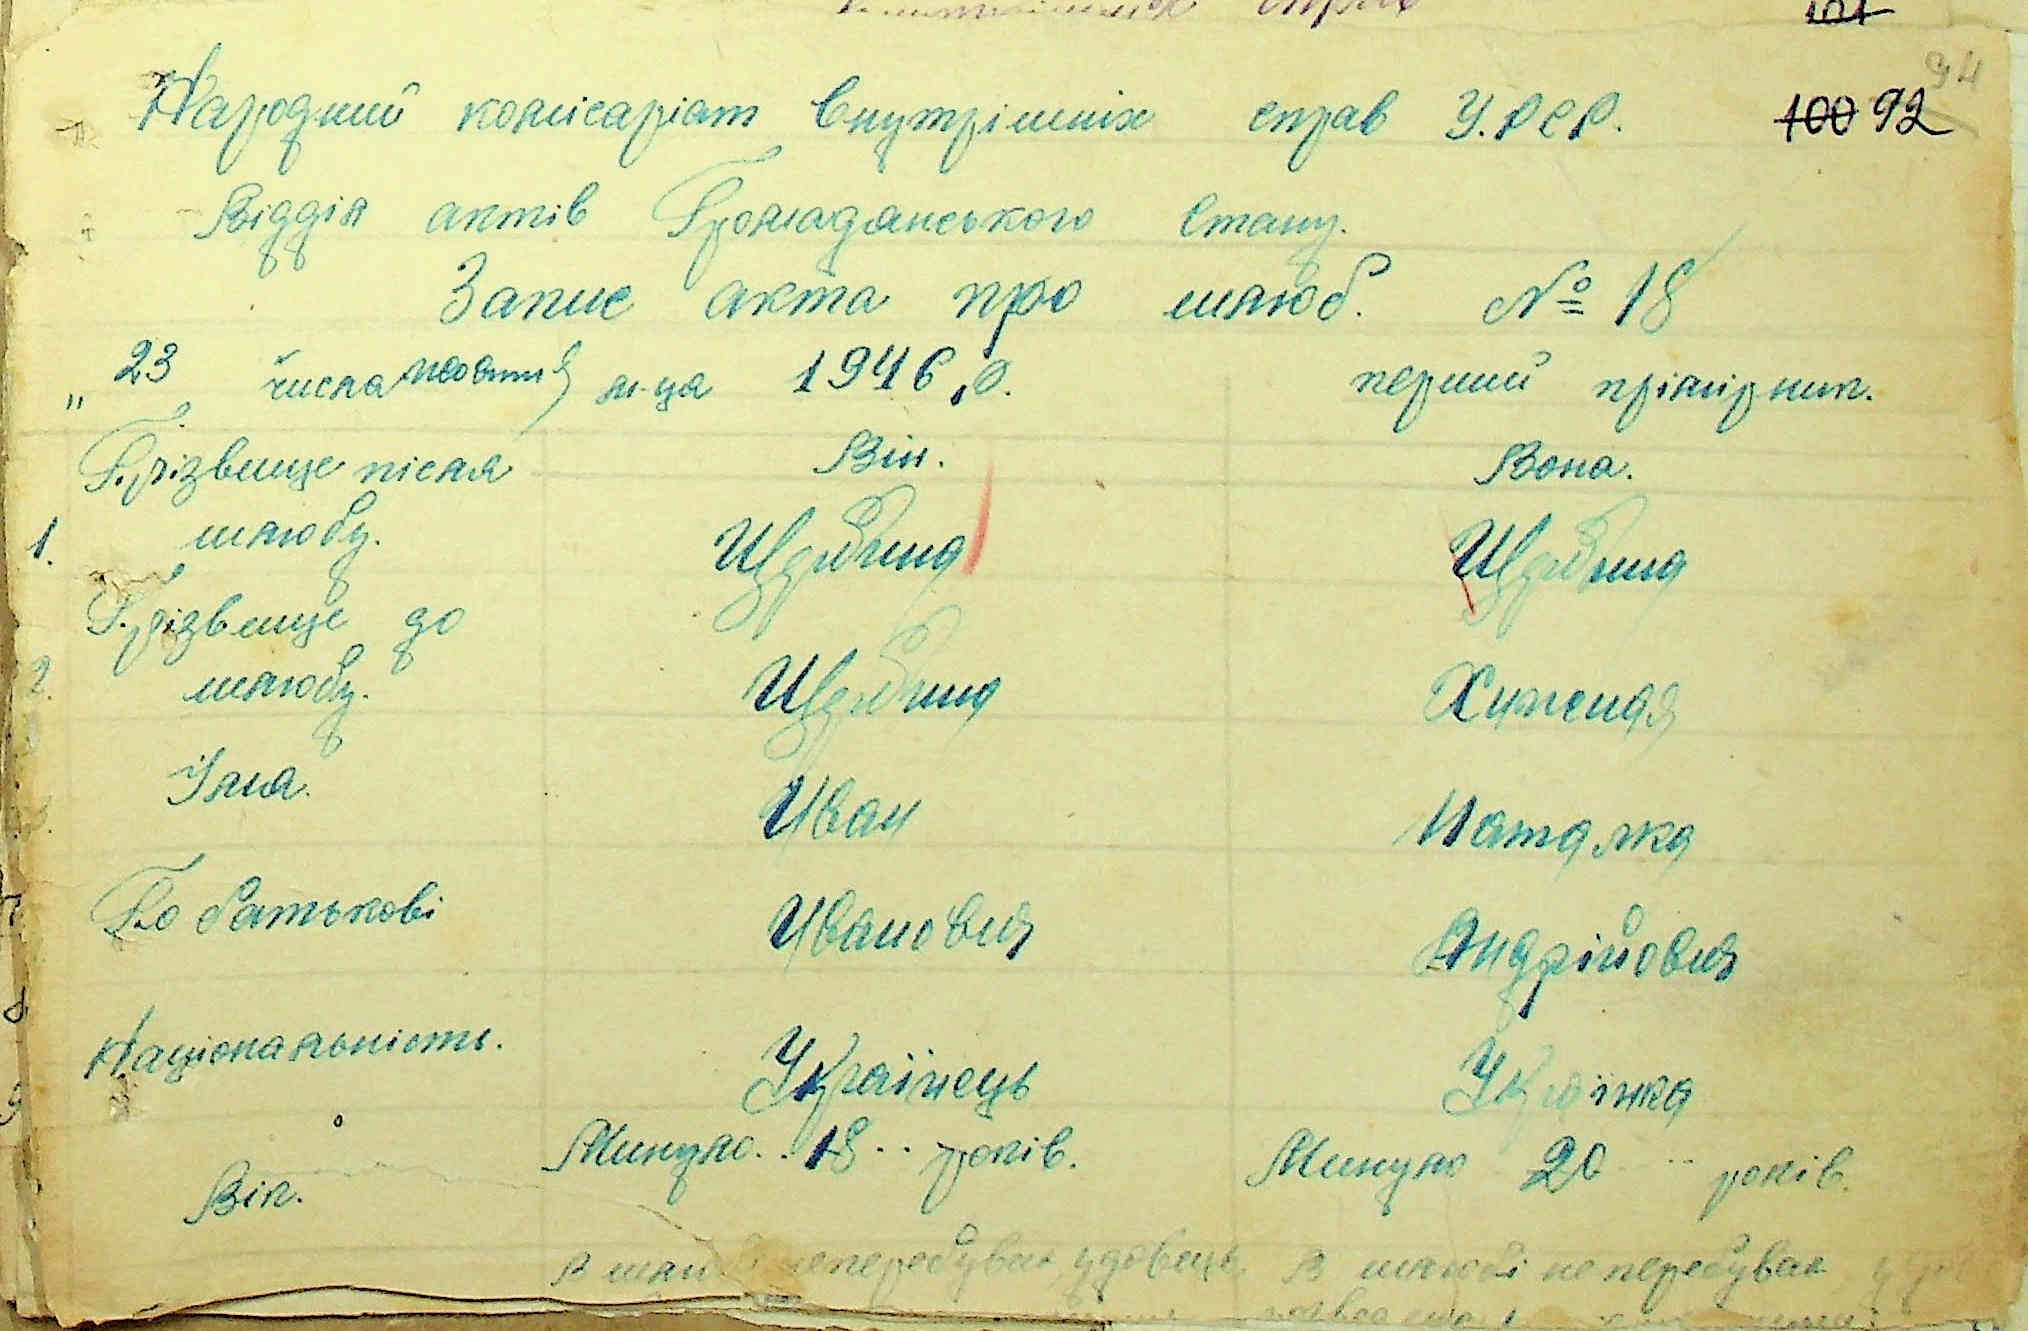 101
94
Народний комісаріат внутрішніх справ У.РСР. 100 92
Відділ актів Громадянського стану.
Запис акта про шлюб. № 18
„ 23 числа жовтня м-ця 1946 р. перший прімірник.
Прізвище після Він. Вона.
1. шлюбу. Щербина Щербина
Прізвище до
2. шлюбу. Щербина
Імя. Иван Наталка
По батькові Иванович Андрійовня
Національність. Українець Українка
Вік. Минуло.. 18.. років. Минуло 20 .. років.
В шлюбі не перебував, удовець В шлюбі не перебував